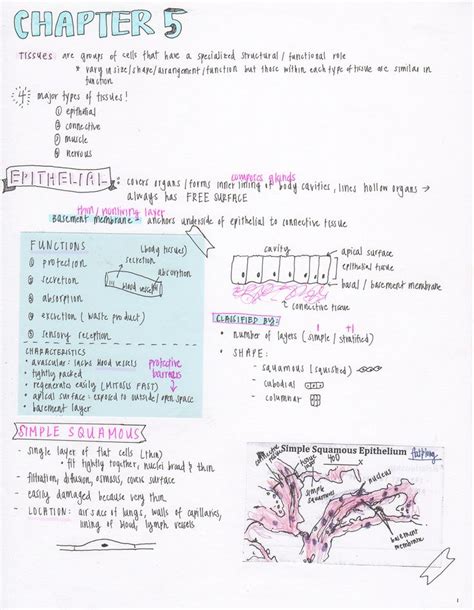 CHAPTER 5
TISSUES: are groups of cells that have a specialized structural / functional role
* vary in size/shape/arrangement/function but those within each type of tissue are similar in
function
4 major types of tissues!
① epithelial
② connective
③ muscle
④ nervous
composes glands
EPITHELIAL: covers organs / forms inner lining of body cavities, lines hollow organs →
always has FREE SURFACE
thin/nonliving layer
basement membrane - anchors underside of epithelial to connective tissue
FUNCTIONS
① protection
② secretion
③ absorption
④ excretion (waste product)
⑤ sensory reception
(body tissues)
secretion
absorption
blood vessel
CHARACTERISTICS
• avascular: lacks blood vessels
• tightly packed
• regenerates easily (MITOSIS FAST)
• apical surface: exposed to outside/open space
• basement layer
protective
barriers
cavity
apical surface
epithelial tissue
basal / basement membrane
connective tissue
CLASSIFIED BY:
1 +1
• number of layers (simple / stratified)
• SHAPE:
- squamous (squished)
- cubodial
- columnar
SIMPLE SQUAMOUS
- single layer of flat cells (thin)
• fit tightly together, nuclei broad & thin
- filtration, diffusion, osmosis, covers surface
- easily damaged because very thin
- LOCATION: air sacs of lungs, walls of capillaries,
lining of blood, lymph vessels
Simple Squamous Epithelium
400
simple
squamous
nucleus
basement
membrane
1